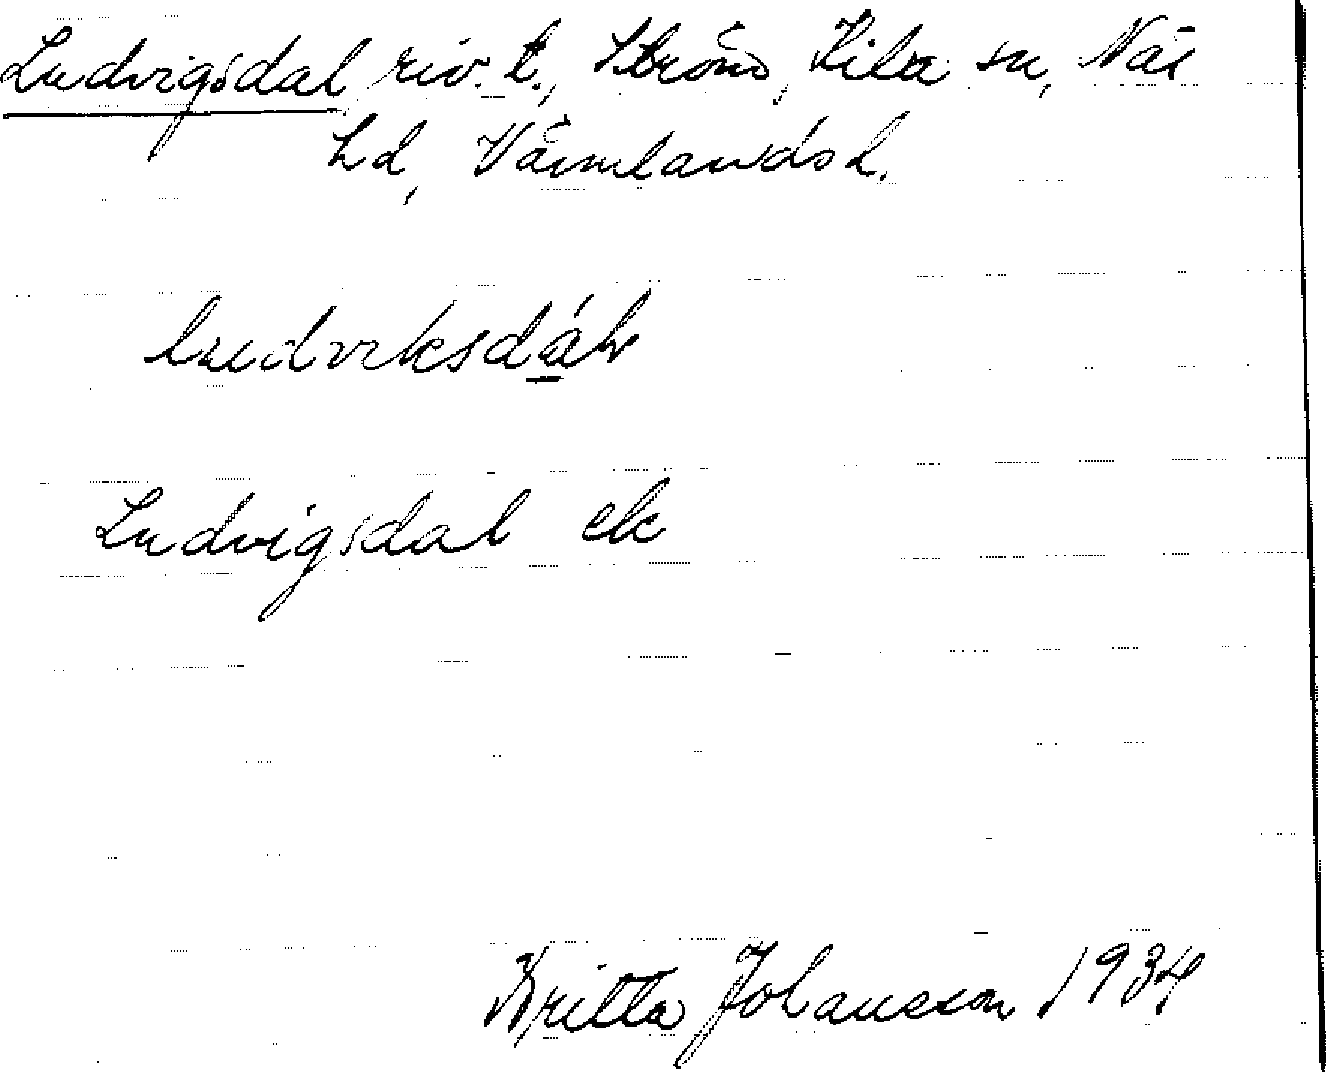 Ludvigsdal, riv. t., Ströms, Kila sn, Näs
hd, Värmlands l.
ludviksdáł
Ludvigsdal ek
Britta Johansson 1934